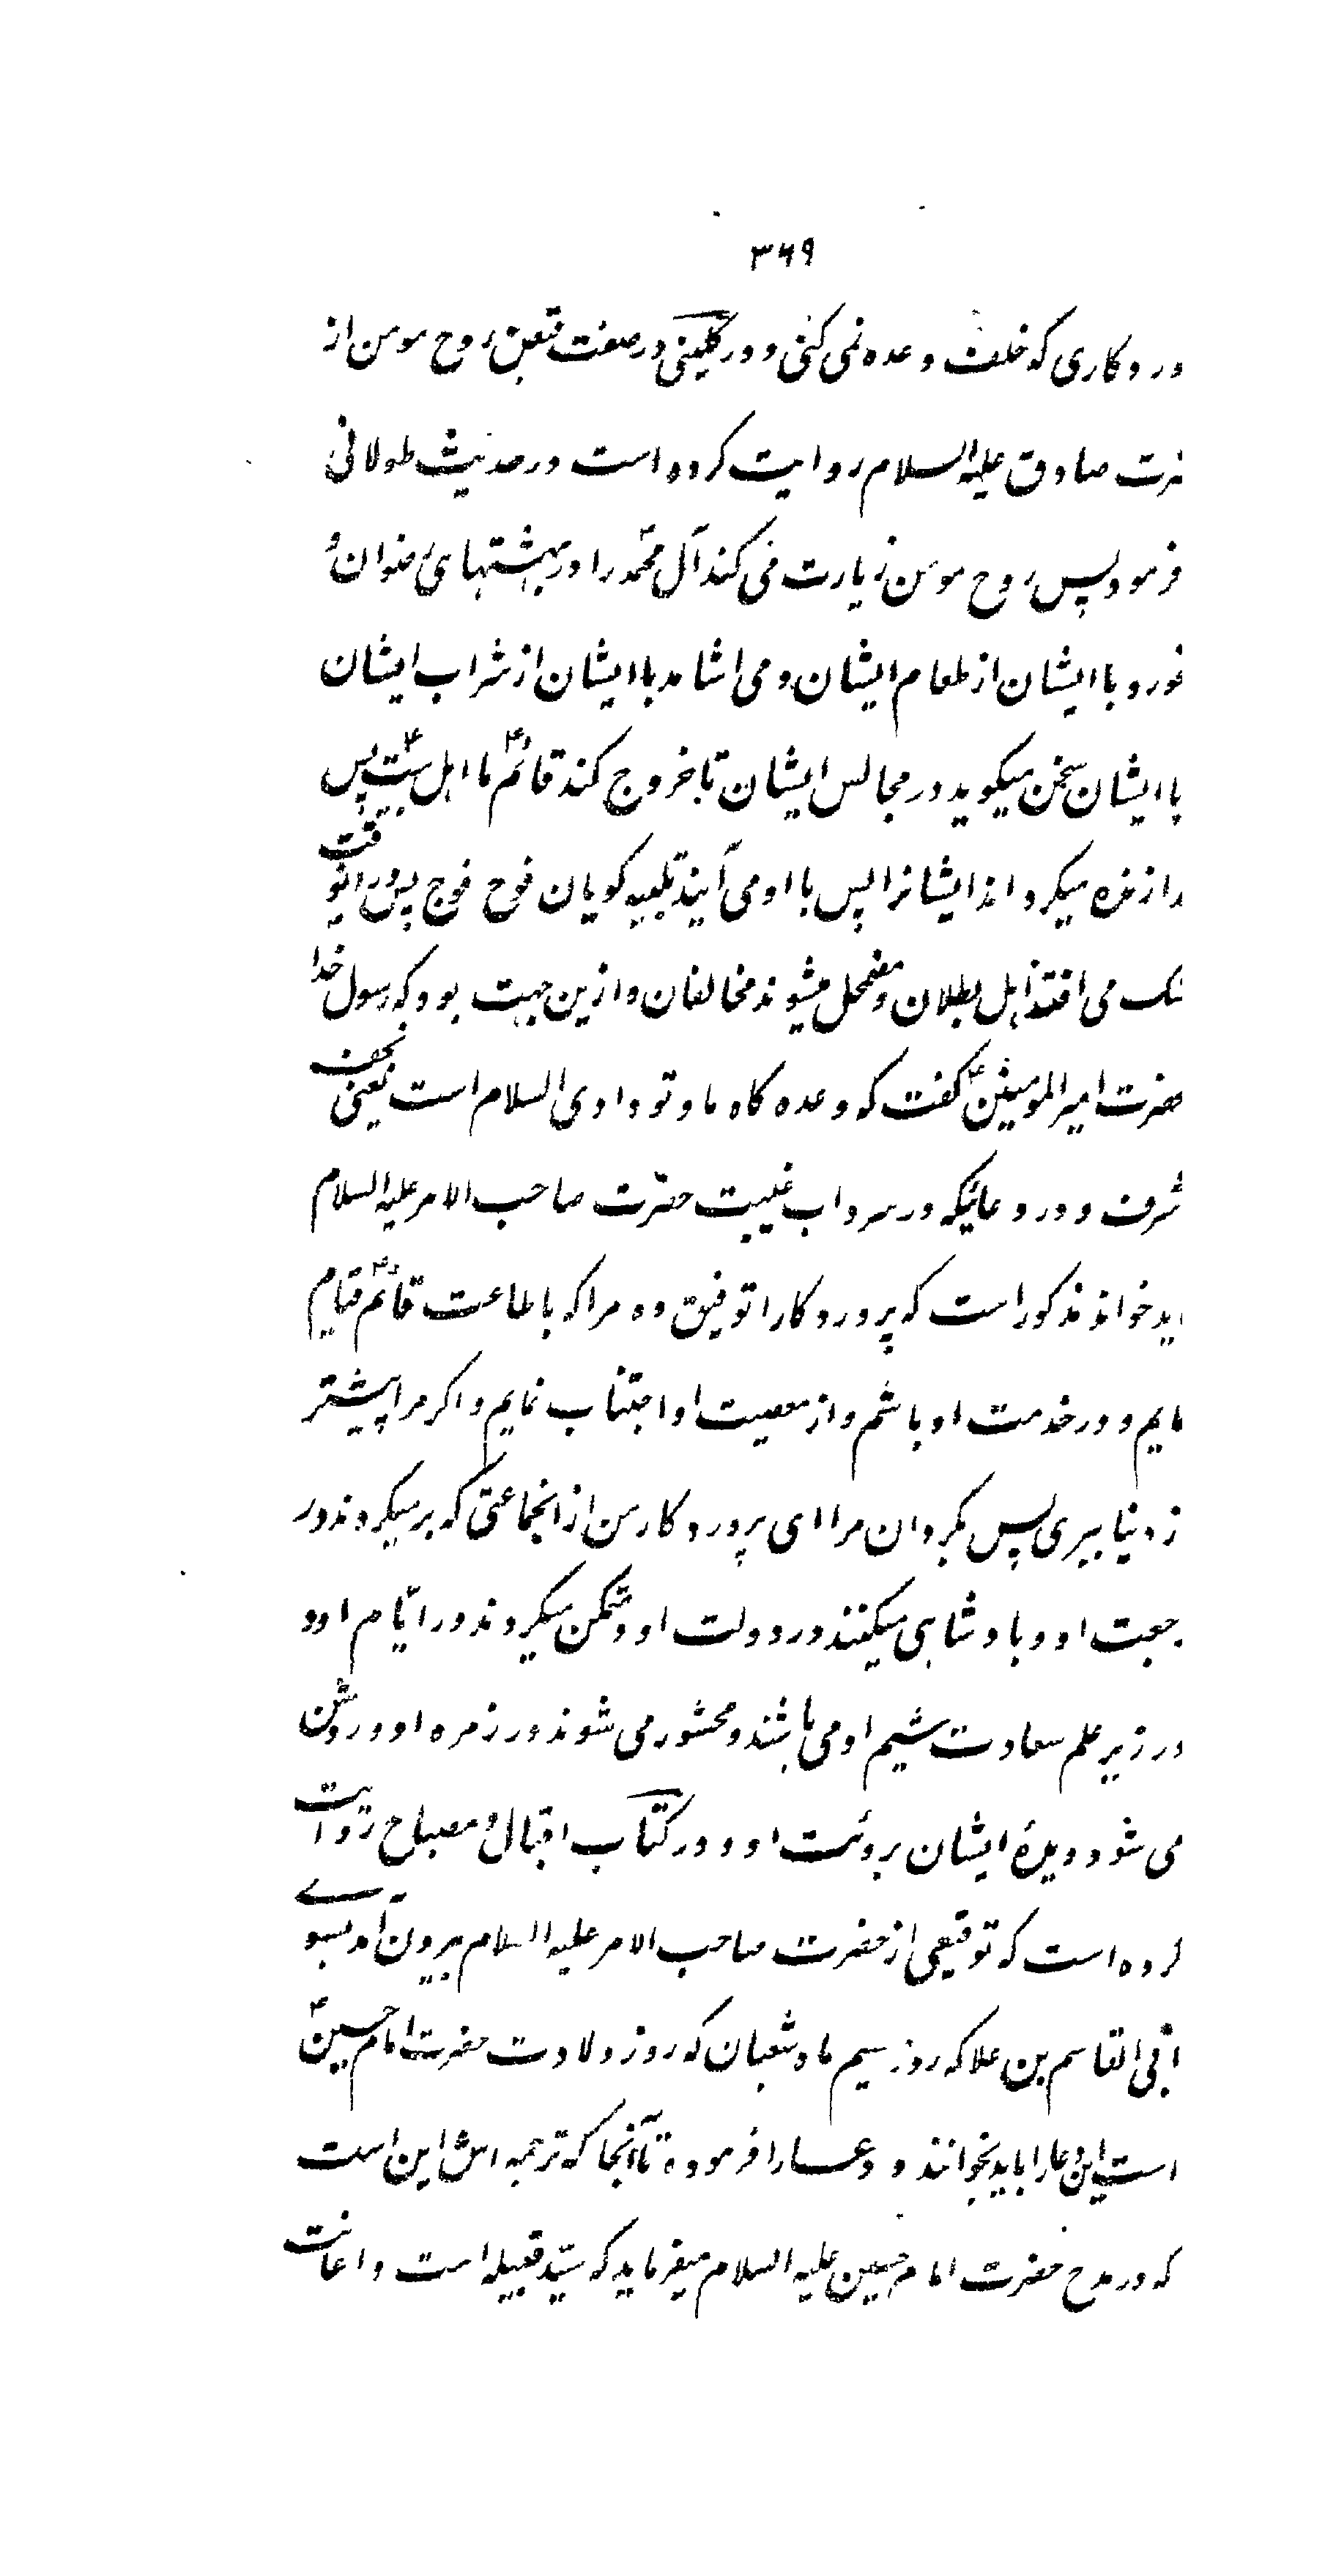 ۳۶۹
وردکاری که خلف وعده نمی کنی و در کلینی در صفت قبض روح مومن از
صادق علیه السلام روایت کرده است در حدیث طولانی
فرمود پس روح مومن زیارت می کند آل محمد را در بهشتهای رضوان و
خورد با ایشان از طعام ایشان و می اشامد با ایشان از شراب ایشان
با ایشان سخن میکوید در مجالس ایشان تا خروج کند قائم ما اهل بیت پس
زنده میکرداند ایشانرا پس با او می آیند تلبیه کویان فوج فوج پس در انوقت
شک می افتند اهل بطلان و مضمحل میشوند مخالفان و ازین جهت بود که رسول خدا
حضرت امیر المومنین گفت که وعده کاه ما و تو وادی السلام است یعنی نجف
شرف و در دعائیکه در سرداب غیبت حضرت صاحب الامر علیه السلام
باید خواند مذکور است که پروردکارا توفیق ده مرا که باطاعت قائم قیام
نمایم و در خدمت او باشم و از معصیت او اجتناب نمایم و اکر مرا پیشتر
ز دنیا ببری پس بکردان مرا ای پروردکار من از انجماعتی که بر میکردند در
رجعت او و بادشاهی میکنند در دولت او و متمکن میکردند در ایّام او و
در زیر علم سعادت شیم او می باشند و محشور می شوند در زمره او و روشن
می شود دیدهٔ ایشان برویت او و در کتاب اقبال و مصباح روایت
کرده است که توقیعی از حضرت صاحب الامر علیه السلام بیرون آمد بسوے
ابی القاسم بن علا که روز سیم ماه شعبان که روز ولادت حضرت امام حسین
است این دعا را باید بخوانند و دعا را فرموده تا آنجا که ترجمه اش این است
که در مدح حضرت امام حسین علیه السلام میفرماید که سیّد قبیله است و اعانت